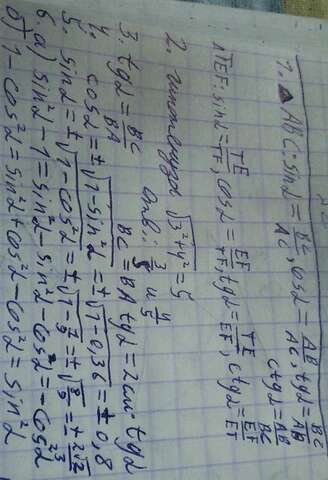 1. ABC: sinα = BC/AC, cosα = AB/AC, tgα = BC/AB
ctgα = AB/BC
ΔTEF: sinα = TE/TF, cosα = EF/TF, tgα = TE/EF, ctgα = EF/ET
2. гипотенуза √3²+4² = 5
Отв: 3/5 и 4/5
3. tgα = BC/BA BC = BA tgα = 2см · tgα
4. cosα = ±√1-sin²α = ±√1-0,36 = ±0,8
5. sinα = ±√1-cos²α = ±√1-1/9 = ±√8/9 = ±2√2/3
6. а) sin²α-1 = sin²α-sin²α-cos²α = -cos²α
б) 1-cos²α = sin²α+cos²α-cos²α = sin²α